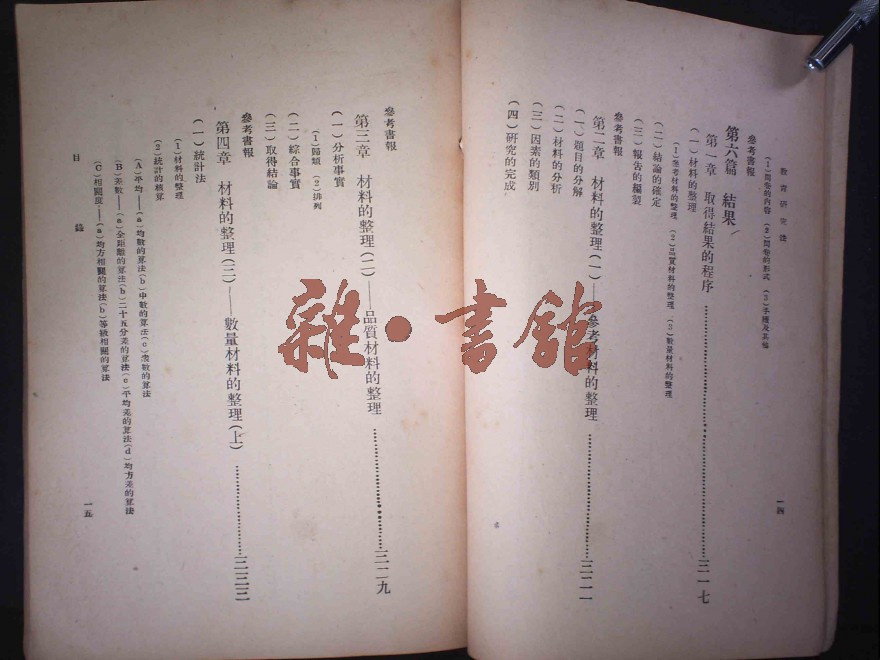 教育研究法
(1)問卷的內容 (2)問卷的形式 (3)手續及其他
參考書報
第六篇 結果
第一章 取得結果的程序……三一七
(一)材料的整理
(1)參考材料的整理 (2)品質材料的整理 (3)數量材料的整理
(二)結論的確定
(三)報告的編製
參考書報
第二章 材料的整理(一)——參考材料的整理……三二一
(一)題目的分解
(二)材料的分析
(三)因素的類別
(四)研究的完成
一四
參考書報
第三章 材料的整理(二)——品質材料的整理……三二九
(一)分析事實
(1)歸類 (2)排列
(二)綜合事實
(三)取得結論
參考書報
第四章 材料的整理(三)——數量材料的整理(上)……三三三
(一)統計法
(1)材料的整理
(2)統計的核算
(A)平均——(a)均數的算法(b)中數的算法(c)衆數的算法
(B)差數——(a)全距離的算法(b)二十五分差的算法(c)平均差的算法(d)均方差的算法
(C)相關度——(a)均方相關的算法(b)等級相關的算法
目錄
一五
雜·書館